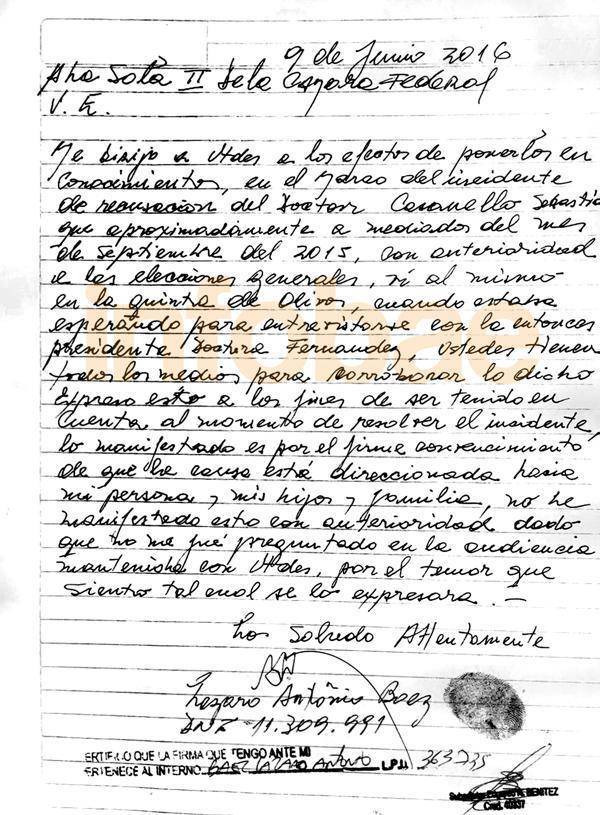 9 de Junio 2016
A la Sala II de la Camara Federal
V. E.
Me dirijo a Utdes a los efectos de ponerlos en
conocimientos, en el marco del incidente
de recusacion del Doctor Casanello Sebastia
que aproximadamente a mediados del mes
de septiembre del 2015, con anterioridad
a las elecciones generales, vi al mismo
en la quinta de Olivos, cuando estaba
esperando para entrevistarse con la entonces
presidenta Doctora Fernandez, Ustedes tienen
todos los medios para corroborar lo dicho
Expreso esto a los fines de ser tenido en
cuenta al momento de resolver el incidente,
lo manifestado es por el firme convencimiento
de que la causa está direccionada hasia
mi persona y mis hijos y familia, no he
manifestado esto con anterioridad dado
que no me fué preguntado en la audiencia
mantenida con Utdes, por el temor que
siento tal cual se lo expresara. —
Los Saludo Attentamente
Lazaro Antônio Baez
DNI - 11.309.991
ERTIFICO QUE LA FIRMA QUE TENGO ANTE MI
ERTENECE AL INTERNO BAEZ LAZARO ANTONIO L.P.U 363.735
BENITEZ
Cred. 40337
infobae